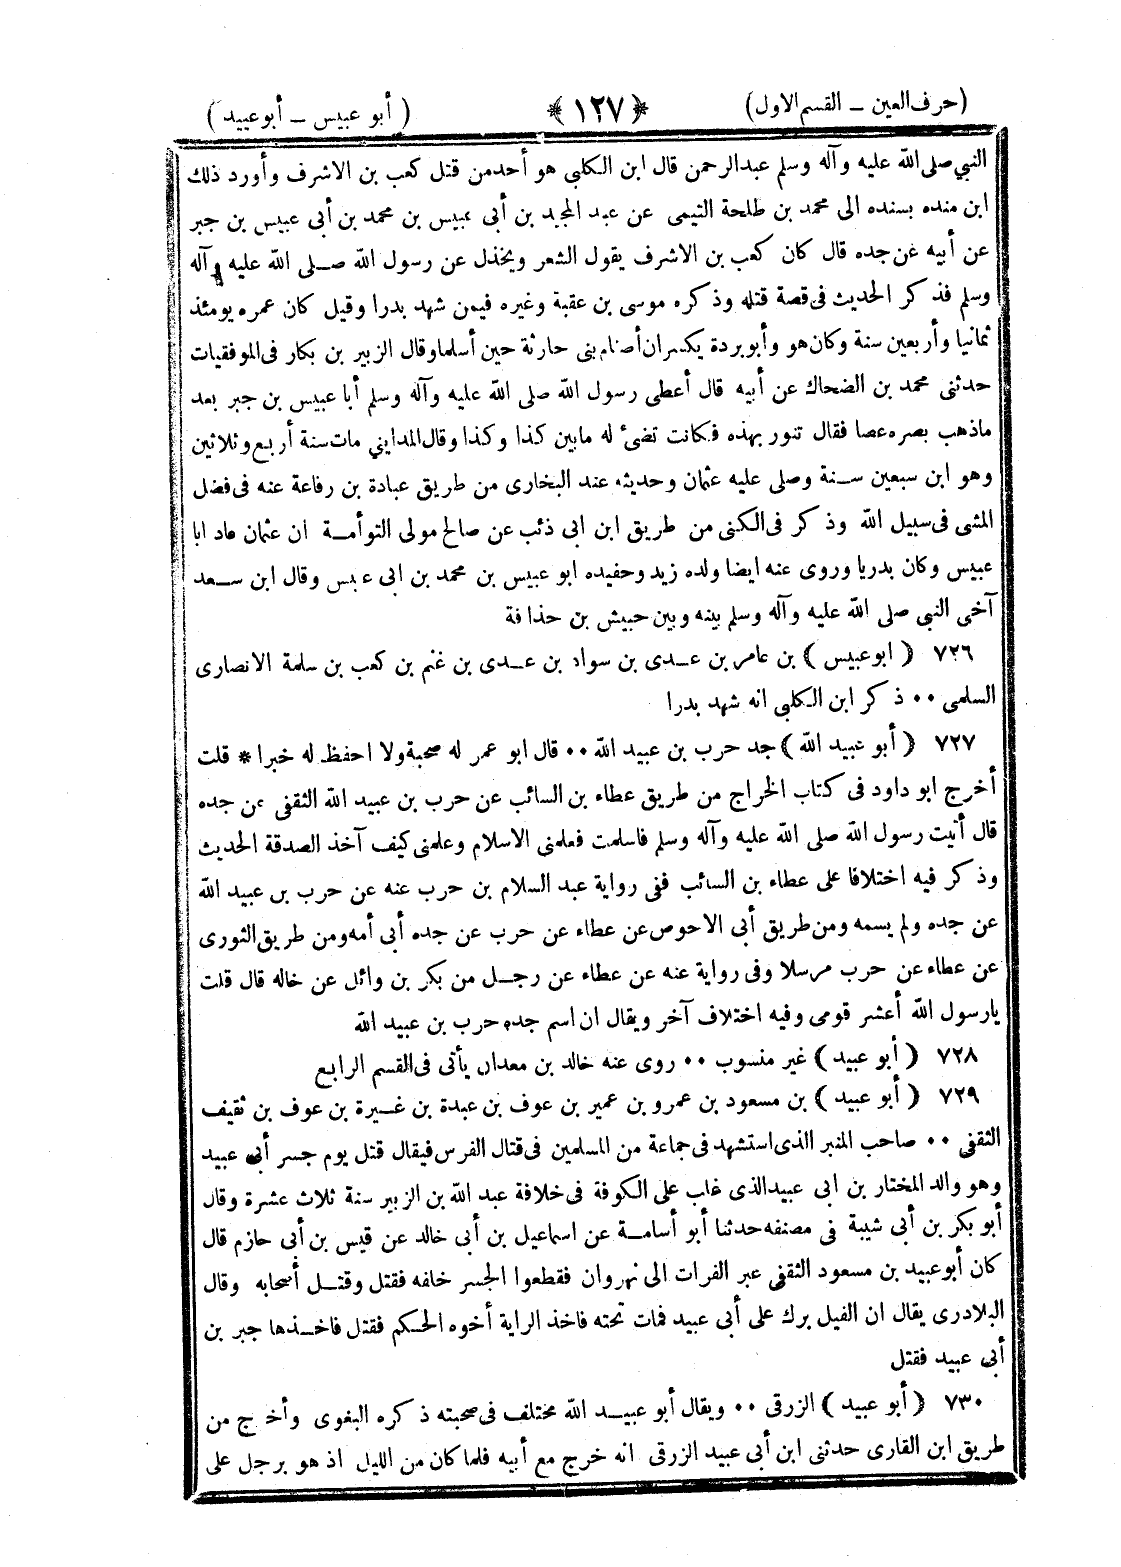 (حرف العين – القسم الاول) ﴿١٢٧﴾ (أبو عبيس – أبو عبيد)
النبي صلى الله عليه وآله وسلم عبدالرحمن قال ابن الكلبى هو أحدمن قتل كعب بن الاشرف وأورد ذلك
ابن منده بسنده الى محمد بن طلحة التيمى عن عبد المجيد بن أبى عبيس بن محمد بن أبى عبيس بن جبر
عن أبيه عن جده قال كان كعب بن الاشرف يقول الشعر ويخذل عن رسول الله صلى الله عليه وآله
وسلم فذكر الحديث فى قصة قتله وذكره موسى بن عقبة وغيره فيمن شهد بدرا وقيل كان عمره يومئذ
ثمانيا وأربعين سنة وكان هو وأبو بردة يكسران أصنام بنى حارثة حين أسلما وقال الزبير بن بكار فى الموفقيات
حدثنى محمد بن الضحاك عن أبيه قال أعطى رسول الله صلى الله عليه وآله وسلم أبا عبيس بن جبر بعد
ماذهب بصره عصا فقال تنور بهذه فكانت تضئ له مابين كذا وكذا وقال المدايني مات سنة أربع وثلاثين
وهو ابن سبعين سنة وصلى عليه عثمان وحديثه عند البخارى من طريق عبادة بن رفاعة عنه فى فضل
المشى فى سبيل الله وذكر فى الكنى من طريق ابن ابى ذئب عن صالح مولى التوأمة ان عثمان عاد ابا
عبيس وكان بدريا وروى عنه ايضا ولده زيد وحفيده ابو عبيس بن محمد بن ابى عبس وقال ابن سعد
آخى النبى صلى الله عليه وآله وسلم بينه وبين حبيش بن حذافة
٧٢٦ (ابوعبيس) بن عامر بن عدى بن سواد بن عدى بن غنم بن كعب بن سلمة الانصارى
السلمى ٠٠ ذكر ابن الكلبى انه شهد بدرا
٧٢٧ (أبو عبيد الله) جد حرب بن عبيد الله ٠٠ قال ابو عمر له صحبة ولا احفظ له خبرا * قلت
أخرج ابو داود فى كتاب الخراج من طريق عطاء بن السائب عن حرب بن عبيد الله الثقفى عن جده
قال أتيت رسول الله صلى الله عليه وآله وسلم فاسلمت فعلمنى الاسلام وعلمنى كيف آخذ الصدقة الحديث
وذكر فيه اختلافا على عطاء بن السائب ففى رواية عبد السلام بن حرب عنه عن حرب بن عبيد الله
عن جده ولم يسمه ومن طريق أبى الاحوص عن عطاء عن حرب عن جده أبى أمه ومن طريق الثورى
عن عطاء عن حرب مرسلا وفى رواية عنه عن عطاء عن رجل من بكر بن وائل عن خاله قال قلت
يارسول الله أعشر قومى وفيه اختلاف آخر ويقال ان اسم جده حرب بن عبيد الله
٧٢٨ (أبو عبيد) غير منسوب ٠٠ روى عنه خالد بن معدان يأتى فى القسم الرابع
٧٢٩ (أبو عبيد) بن مسعود بن عمرو بن عمير بن عوف بن عبدة بن غيرة بن عوف بن ثقيف
الثقفى ٠٠ صاحب المنبر الذى استشهد فى جماعة من المسلمين فى قتال الفرس فيقال قتل يوم جسر أبى عبيد
وهو والد المختار بن ابى عبيد الذى غاب على الكوفة فى خلافة عبد الله بن الزبير سنة ثلاث عشرة وقال
أبو بكر بن أبى شيبة فى مصنفه حدثنا أبو أسامة عن اسماعيل بن أبى خالد عن قيس بن أبى حازم قال
كان أبو عبيد بن مسعود الثقفى عبر الفرات الى نهروان فقطعوا الجسر خلفه فقتل وقتل أصحابه وقال
البلادرى يقال ان الفيل برك على أبى عبيد فمات تحته فاخذ الراية أخوه الحكم فقتل فاخذها جبر بن
أبى عبيد فقتل
٧٣٠ (أبو عبيد) الزرقى ٠٠ ويقال أبو عبيد الله مختلف فى صحبته ذكره البغوى وأخرج من
طريق ابن القارى حدثنى ابن أبى عبيد الزرقى انه خرج مع أبيه فلما كان من الليل اذ هو برجل على